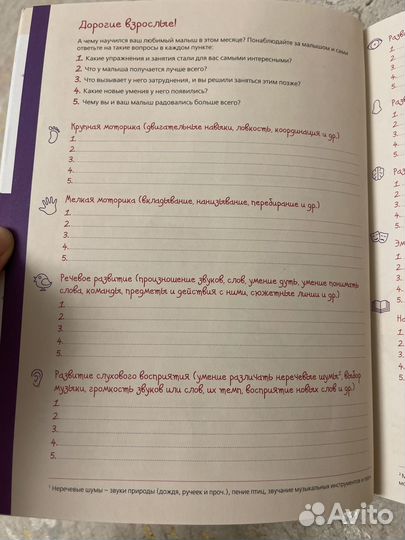 Дорогие взрослые!
А чему научился ваш любимый малыш в этом месяце? Понаблюдайте за малышом и сами
ответьте на такие вопросы в каждом пункте:
1. Какие упражнения и занятия стали для вас самыми интересными?
2. Что у малыша получается лучше всего?
3. Что вызывает у него затруднения, и вы решили заняться этим позже?
4. Какие новые умения у него появились?
5. Чему вы и ваш малыш радовались больше всего?
Крупная моторика (двигательные навыки, ловкость, координация и др.)
1.
2.
3.
4.
5.
Мелкая моторика (вкладывание, нанизывание, перебирание и др.)
1.
2.
3.
4.
5.
Речевое развитие (произношение звуков, слов, умение дуть, умение понимать
слова, команды, предметы и действия с ними, сюжетные линии и др.)
1.
2.
3.
4.
5.
Развитие слухового восприятия (умение различать неречевые шумы¹, выбор
музыки, громкость звуков или слов, их темп, восприятие новых слов и др.)
1.
2.
3.
4.
5.
¹ Неречевые шумы – звуки природы (дождя, ручеек и проч.), пение птиц, звучание музыкальных инструментов и
Avito